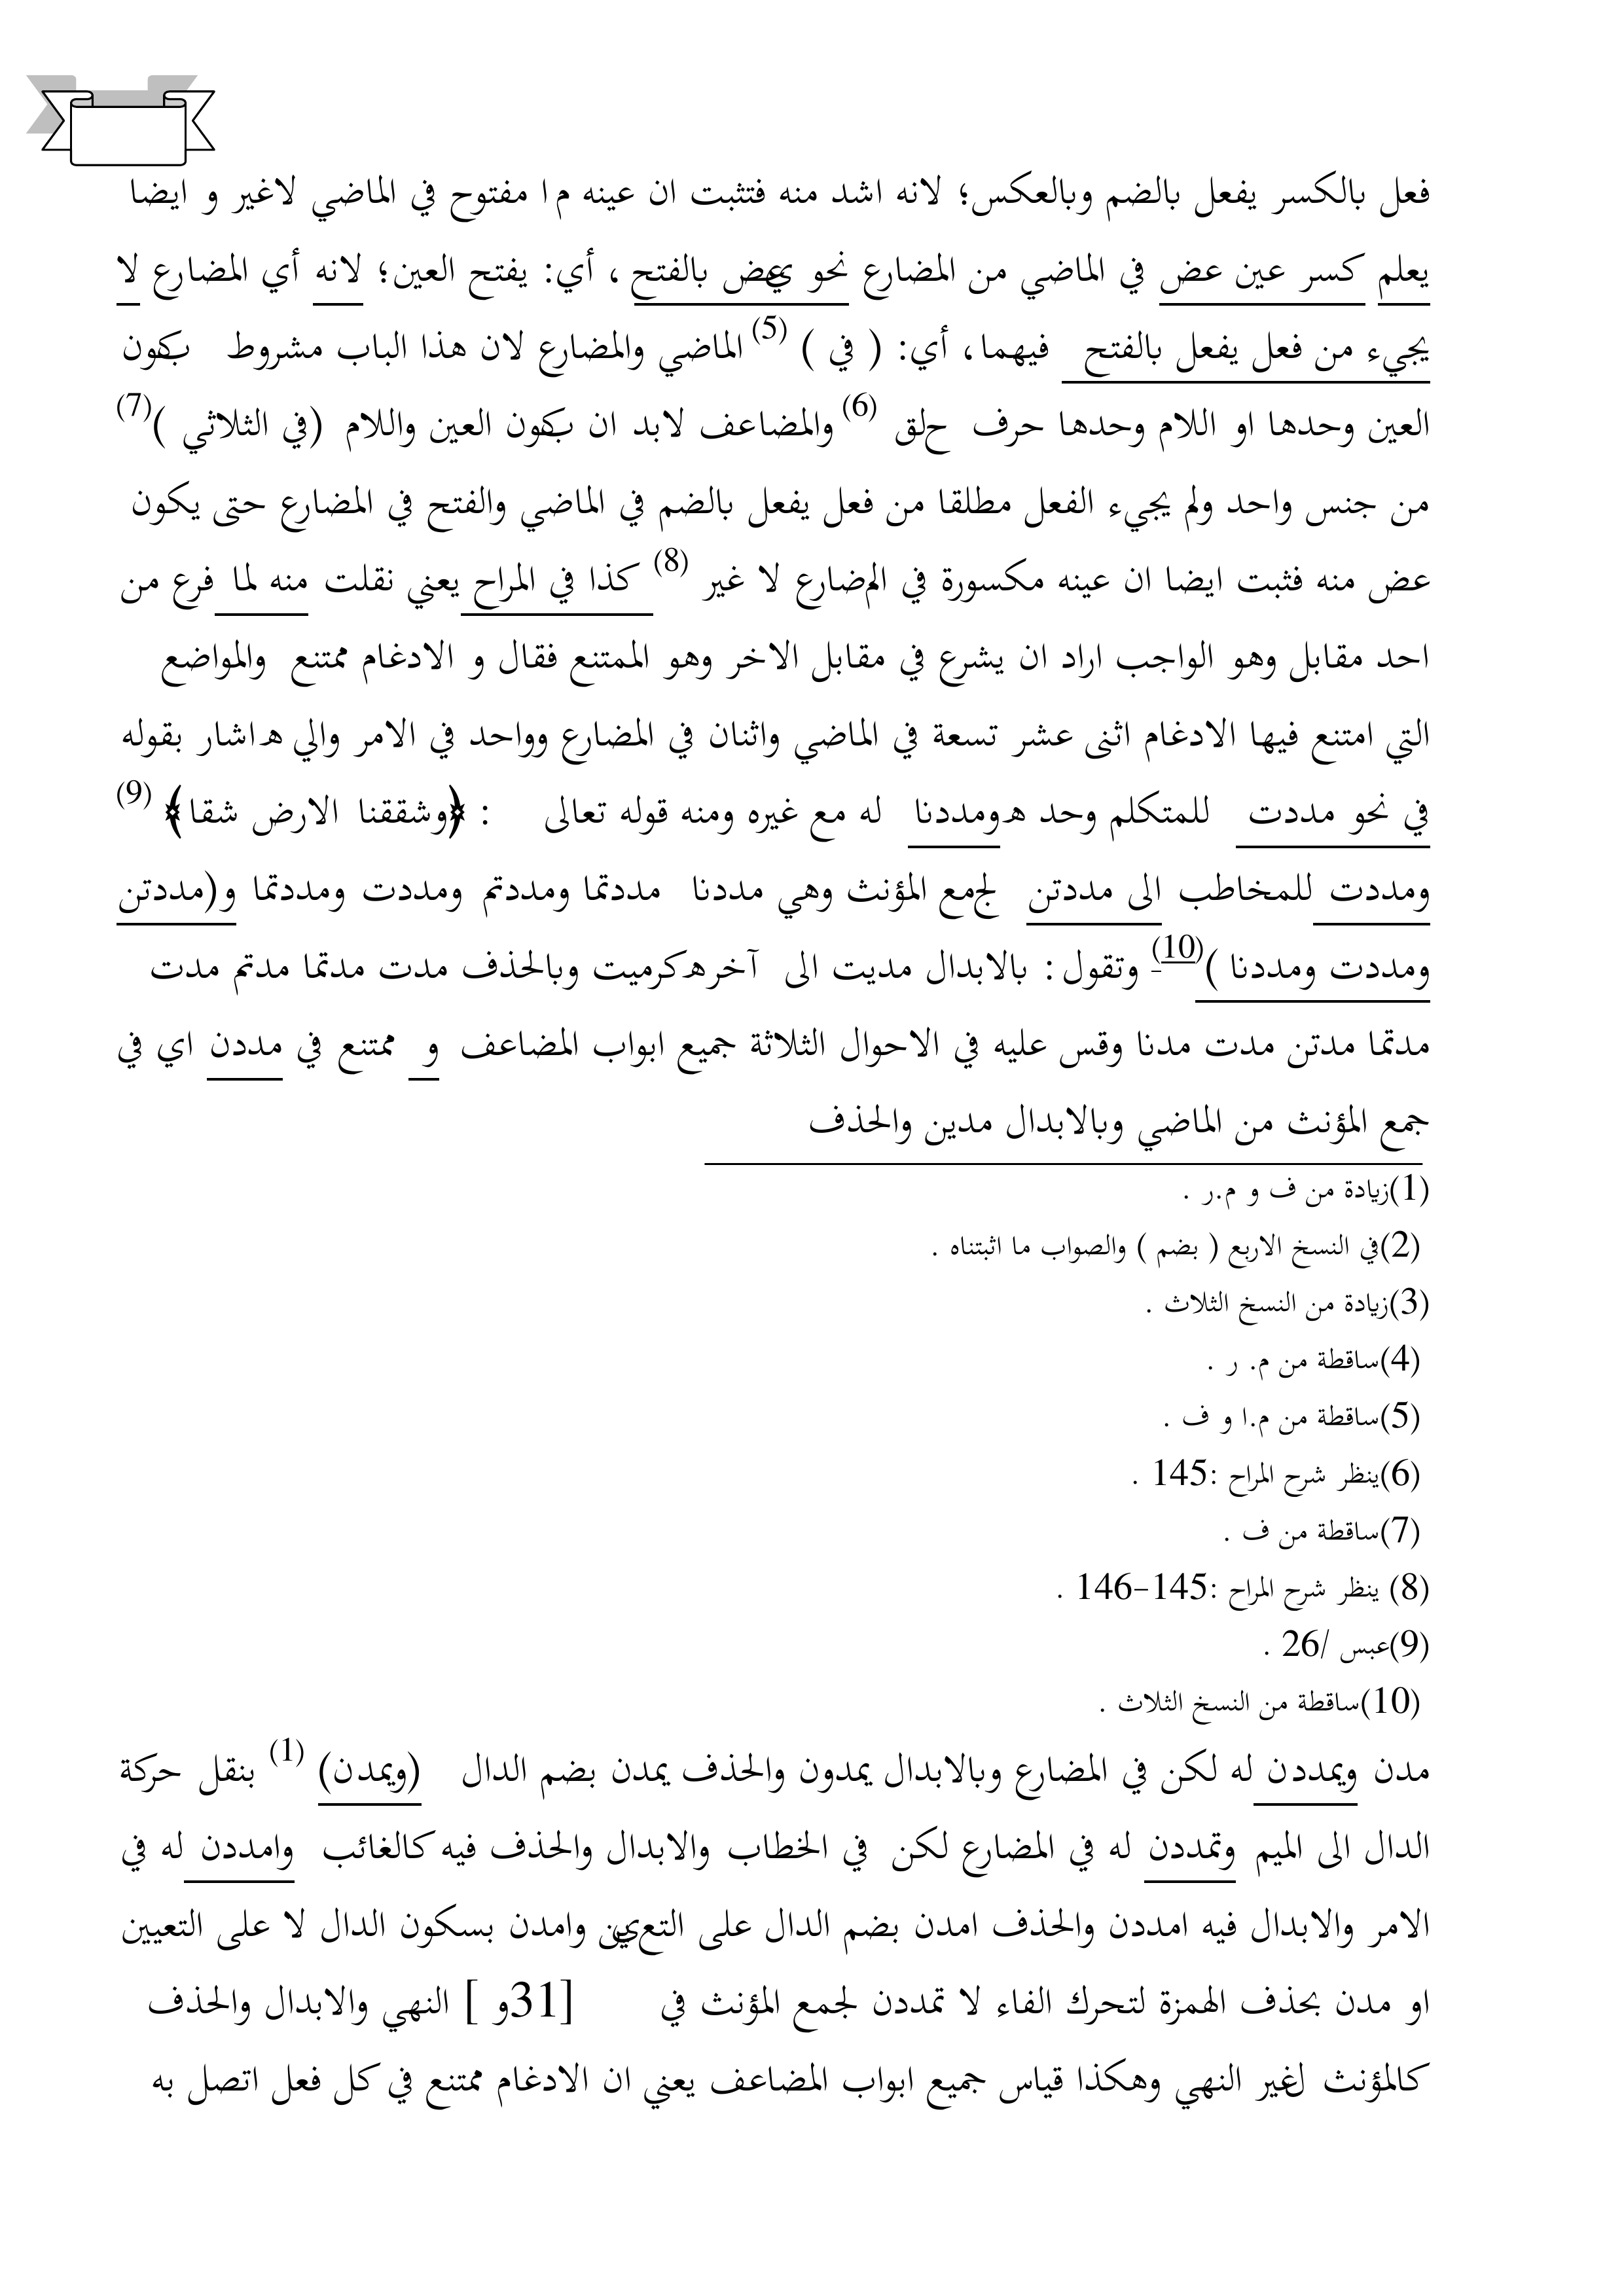 فعل بالكسر يفعل بالضم وبالعكس؛ لانه اشد منه فتثبت ان عينه م ا مفتوح في الماضي لاغير و ايضا
يعلم كسر عين عض في الماضي من المضارع نحو يعض بالفتح ، أي: يفتح العين؛ لانه أي المضارع لا
يجيء من فعل يفعل بالفتح فيهما، أي: ( في ) (5) الماضي والمضارع لان هذا الباب مشروط بكون
العين وحدها او اللام وحدها حرف حلق (6) والمضاعف لابد ان يكون العين واللام (في الثلاثي )(7)
من جنس واحد ولم يجيء الفعل مطلقا من فعل يفعل بالضم في الماضي والفتح في المضارع حتى يكون
عض منه فثبت ايضا ان عينه مكسورة في المضارع لا غير (8) كذا في المراح يعني نقلت منه لما فرع من
احد مقابل وهو الواجب اراد ان يشرع في مقابل الاخر وهو الممتنع فقال و الادغام ممتنع والمواضع
التي امتنع فيها الادغام اثنى عشر تسعة في الماضي واثنان في المضارع وواحد في الامر والي ه اشار بقوله
في نحو مددت للمتكلم وحد ه ومددنا له مع غيره ومنه قوله تعالى : ﴿وشققنا الارض شقا﴾ (9)
ومددت للمخاطب الى مددتن لجمع المؤنث وهي مددنا مددتما ومددتم ومددت ومددتما و(مددتن
ومددت ومددنا )(10) وتقول : بالابدال مديت الى آخره كرميت وبالحذف مدت مدتما مدتم مدت
مدتما مدتن مدت مدنا وقس عليه في الاحوال الثلاثة جميع ابواب المضاعف و ممتنع في مددن اي في
جمع المؤنث من الماضي وبالابدال مدين والحذف
(1)زيادة من ف و م.ر .
(2)في النسخ الاربع ( بضم ) والصواب ما اثبتناه .
(3)زيادة من النسخ الثلاث .
(4)ساقطة من م. ر .
(5)ساقطة من م.ا و ف .
(6)ينظر شرح المراح :145 .
(7)ساقطة من ف .
(8) ينظر شرح المراح :145-146 .
(9)عبس /26 .
(10)ساقطة من النسخ الثلاث .
مدن ويمددن له لكن في المضارع وبالابدال يمدون والحذف يمدن بضم الدال (ويمدن) (1) بنقل حركة
الدال الى الميم وتمددن له في المضارع لكن في الخطاب والابدال والحذف فيه كالغائب وامددن له في
الامر والابدال فيه امددن والحذف امدن بضم الدال على التعيين وامدن بسكون الدال لا على التعيين
او مدن بحذف الهمزة لتحرك الفاء لا تمددن لجمع المؤنث في [31و ] النهي والابدال والحذف
كالمؤنث لغير النهي وهكذا قياس جميع ابواب المضاعف يعني ان الادغام ممتنع في كل فعل اتصل به